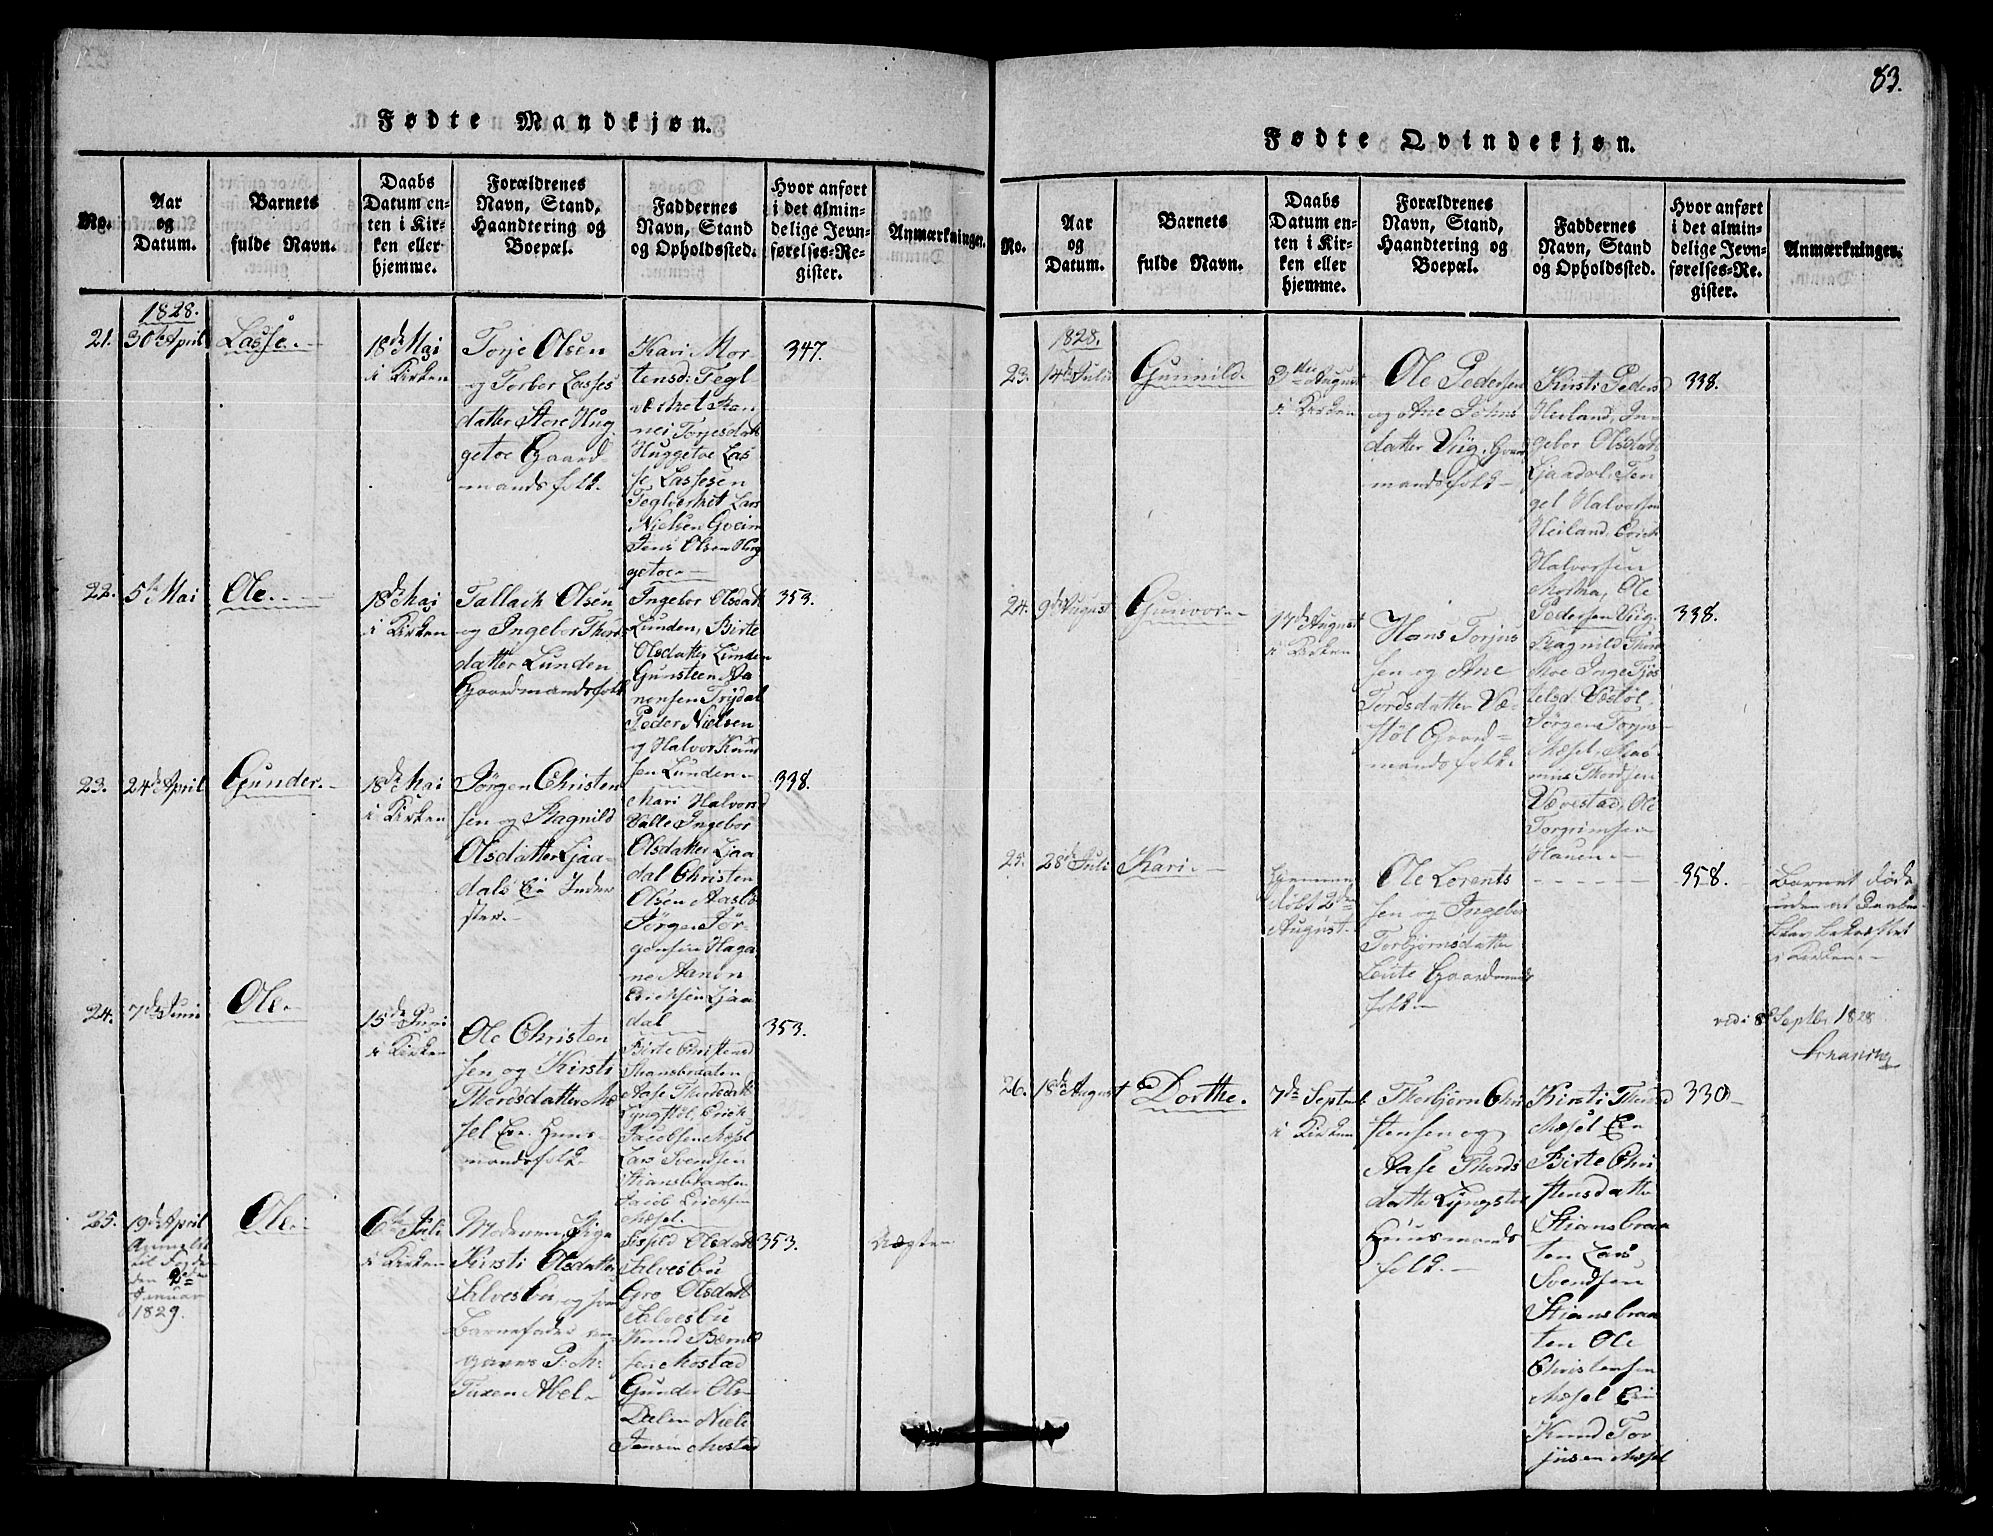 83.
Fødte Mandkjøn.
No.
Aar
og
Datum.
Barnets
fulde Navn.
Daabs
Datum en-
ten i Kir-
ken eller
hjemme.
Forældrenes
Navn, Stand,
Haandtering og
Boepæl.
Faddernes
Navn, Stand
og Opholdssted.
Hvor anført
i det almin-
delige Jevn-
førelses-Re-
gister.
Anmærkninger.
1828.
21.
30te April
Lasse.
18de Maj
i Kirken
Torje Olsen
og Torbor Lasses
datter Store Hug
getoe Gaard-
mandsfolk.
Kari Mor-
tensd: Tegl
værket Ran
nei Torjesdatt
Huggetoe Las
se Lassesen
Teglverket Lars
Nielsen Gveim
Jens Olsen Hug
getoe
347.
22.
5te Mai
Ole.
18de Maj
i Kirken
Tallach Olsen
og Ingebor Thors
datter Lunden
Gaardmandsfolk
Ingebor Olsdatt
Lunden, Birte
Olsdatter Lunden
Gunsteen Aa
nensen Trydal
Peder Nielsen
og Halvor Knud
sen Lunden
353.
23.
24de April
Gunder.
18de Mai
i Kirken
Jörgen Christen
sen og Ragnild
Olsdatter Ljaa-
dals Ei Inder
ster.
Mari Halvorsd
Valle Ingebor
Olsdatter Ljaa
dal Christen
Olsen Aasbö
Jörgen Jör-
gensen Haga
ne Aanon
Erichsen Ljaa
dal
338.
24.
7de Juni
Ole.
15de Juni
i Kirken
Ole Christen
sen og Kirsti
Thordsdatter Mæ
sel Eie Huus-
mandsfolk.
Birte Christensd
Stiansbraaten
Aase Thordsdatt
Lyngstöl Erich
Jacobsen Mæsel
Lars Svendsen
Stiansbraaten
Jacob Erichsen
Mæsel.
353.
25.
19de April
Anmeldt
til Fogden
den 2de
Januar
1829.
Ole.
6te Juli
i Kirken
Moderen Pige
Kirsti Olsdatter
Selvesbu, og som
Barnefader an-
gaves P: M:
Tuxen Abel
Espeld Olsdatt
Selvesbu
Gro Olsdatt
Selvesbu
Knud Bærnt
sen Mostad
Gunder Ols-
Dalen Niels
Jensen Mostad
353.
Uægte
Fødte Qvindekjøn.
No.
Aar
og
Datum.
Barnets
fulde Navn.
Daabs
Datum en-
ten i Kir-
ken eller
hjemme.
Forældrenes
Navn, Stand,
Haandtering og
Boepæl.
Faddernes
Navn, Stand
og Opholdssted.
Hvor anført
i det almin-
delige Jevn-
førelses-Re-
gister.
Anmærkninger.
1828.
23.
14de Juli
Gunnild.
3die August
i Kirken
Ole Pedersen
og Ane Johns
datter Viig. Gaard
mandsfolk
Kirsti Peders
Heiland, In-
gebor Olsdatt
Ljaadal, Ten
gel Halvorsen
Heiland Erich
Halvorsen
Morha, Ole
Pedersen Viig.
338.
24.
9de August
Gunvor
17de August
i Kirken
Hans Torjus
sen og Ane
Tordsdatter Væ
støl Gaard-
mandsfolk.
Ragnild Thors
Moe Inge Tjös
telsd. Væstöl
Jörgen Torjus
Mæsel, Raś-
mus Thordsen
Vævestad, Ole
Torgrimsen
Hauen
338.
25.
28de Juli
Kari.
hjemme
døbt 2den
August.
Ole Lorents
sen og Ingebor
Torbjörnsdatter
Leite Gaardmands
folk
358.
Barnet døde
inden at Daaben
blev bekræftet
i Kirken
red: 8de Septbr 1828
26.
18de August
Dorthe.
7de Septemb
i Kirken
Thorbjørn Chri
stensen og
Aase Thords
datter Lyngstöl
Huusmands
folk.
Kirsti Thord
Mæsel Eie
Birte Chri
stensdatte
Stiansbraa
ten Lars
Svendsen
Stiansbraa
ten Ole
Christensen
Mæsel Eie
Knud Tor
jusen Mæsel
330